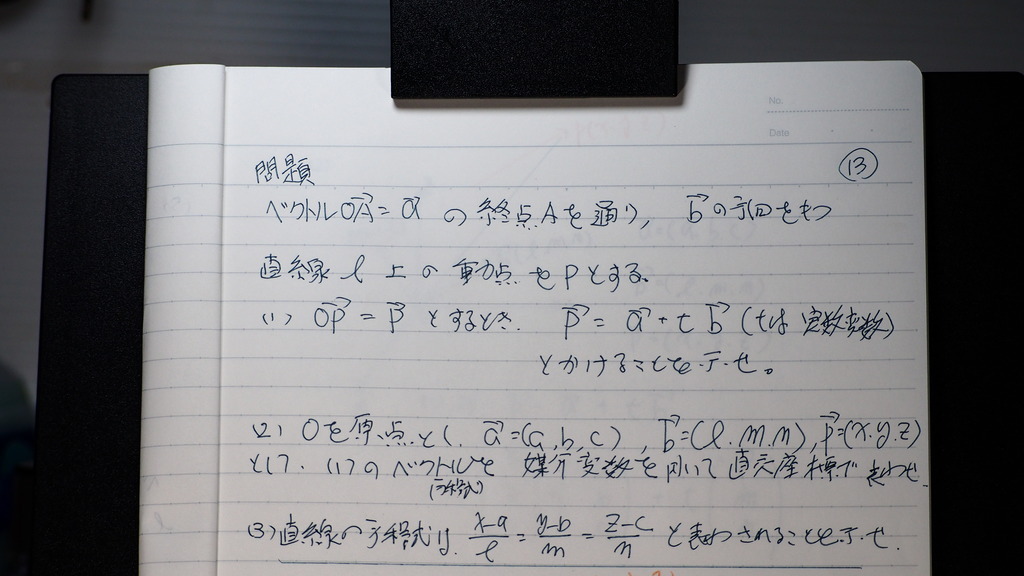 No.
Date
⑬
問題
ベクトルOA→=a→ の終点Aを通り, b→の方向をもつ
直線 l 上の動点をPとする。
(1) OP→ = P→ とするとき. P→ = a→ + t b→ (tは実数変数)
とかけることを示せ。
(2) Oを原点とし. a→=(a,b,c), b→=(l.m.n), P→=(x.y.z)
として. (1)のベクトルを媒介変数を用いて直交座標で表わせ.
(方程式)
(3) 直線の方程式は. (x-a)/l = (y-b)/m = (z-c)/n と表わされることを示せ.